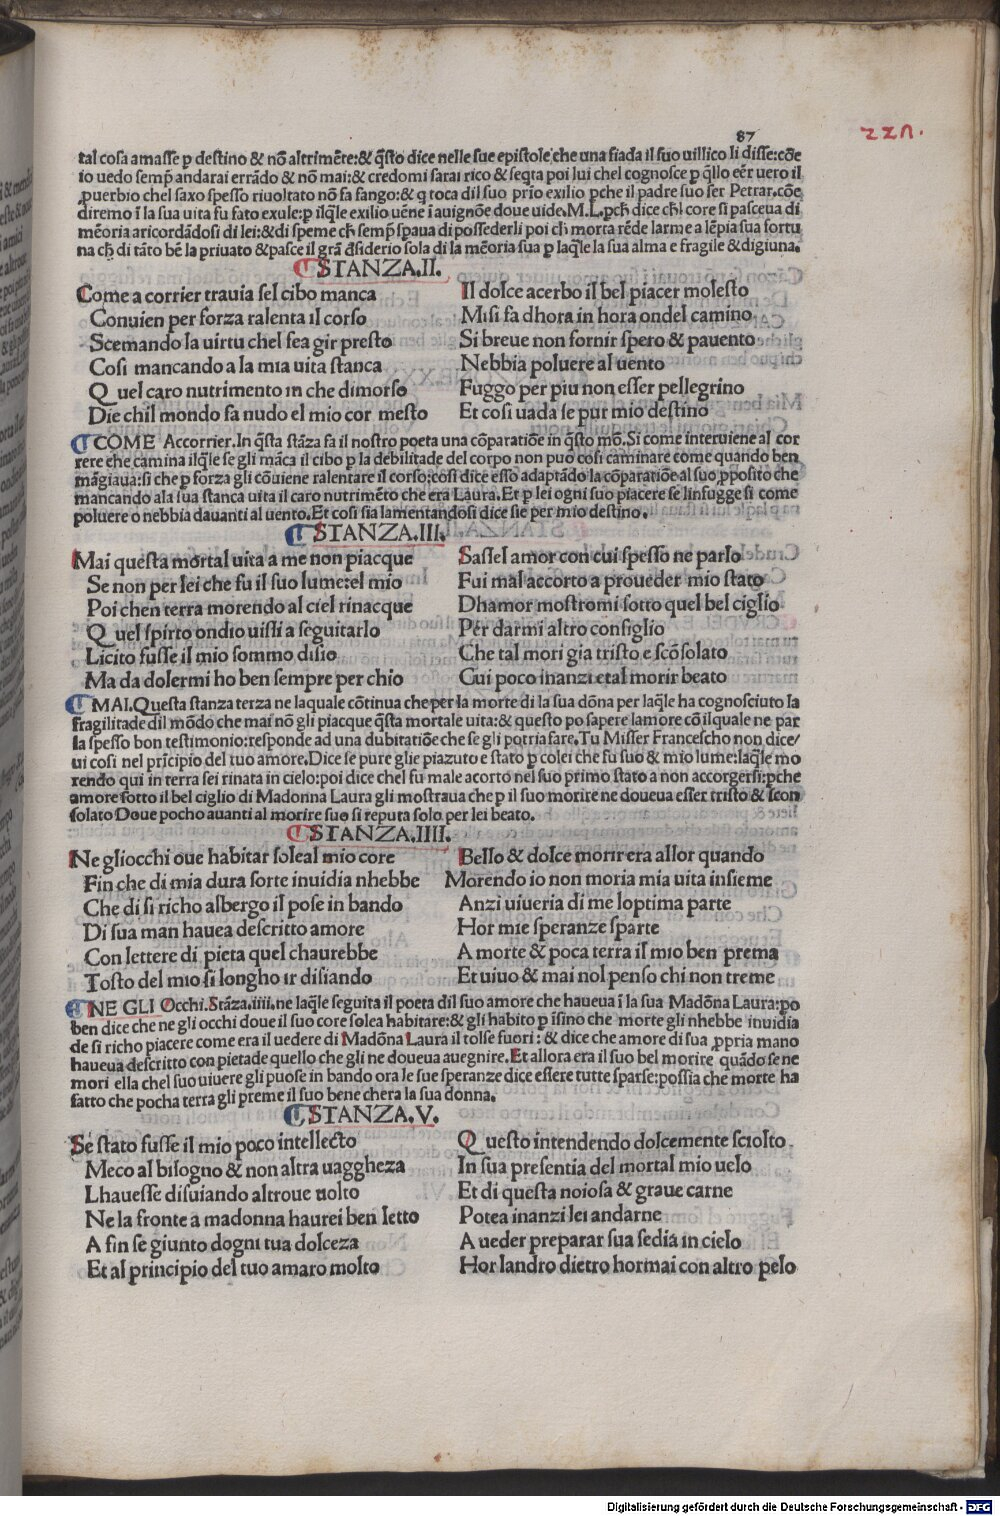 87
221.
tal cosa amasse p destino & nō altrimēte:& q̄sto dice nelle sue epistole che una fiada il suo uillico li disse:cōe
io uedo semp̄ andarai errādo & nō mai:& credomi sarai rico & seq̄ta poi lui chel cognosce p q̄llo eēr uero il
puerbio chel saxo spesso riuoltato nō fa fango:& q toca dil suo prīo exilio pche il padre suo ser Petrar.cōe
diremo ī la sua uita fu fato exule:p ilq̄le exilio uēne ī auignōe doue uide.M.L.pch̄ dice ch̄l core si pasceua di
mēoria aricordādosi di lei:& di speme ch̄ semp̄ spaua di possederli poi ch̄ morta rēde larme a lēpia sua fortu
na ch̄ di tāto bē la priuato & pasce il grā dsiderio sola di la mēoria sua p laq̄le la sua alma e fragile & digiuna.
STANZA.II.
Come a corrier trauia sel cibo manca
Conuien per forza ralenta il corso
Scemando la uirtu chel fea gir presto
Cosi mancando a la mia uita stanca
Quel caro nutrimento in che dimorso
Die chil mondo fa nudo el mio cor mesto
Il dolce acerbo il bel piacer molesto
Misi fa dhora in hora ondel camino
Si breue non fornir spero & pauento
Nebbia poluere al uento
Fuggo per piu non esser pellegrino
Et cosi uada se pur mio destino
COME Accorrier.In q̄sta stāza fa il nostro poeta una cōparatiōe in q̄sto mō.Si come interuiene al cor
rere che camina ilq̄le se gli māca il cibo p la debilitade del corpo non puo cosi caminare come quando ben
māgiaua:si che p forza gli cōuiene ralentare il corso:cosi dice esso adaptādo la cōparatiōe al suo pposito che
mancando ala sua stanca uita il caro nutrimēto che era Laura.Et p lei ogni suo piacere se linfugge si come
poluere o nebbia dauanti al uento.Et cosi sia lamentandosi dice sie per mio destino.
STANZA.III.
Mai questa mortal uita a me non piacque
Se non per lei che fu il suo lume:el mio
Poi chen terra morendo al ciel rinacque
Quel spirto ondio uissi a seguitarlo
Licito fusse il mio sommo disio
Ma da dolermi ho ben sempre per chio
Sassel amor con cui spesso ne parlo
Fui mal accorto a proueder mio stato
Dhamor mostromi sotto quel bel ciglio
Per darmi altro consiglio
Che tal mori gia tristo e scōsolato
Cui poco inanzi etal morir beato
MAI.Questa stanza terza ne laquale cōtinua che per la morte di la sua dōna per laq̄le ha cognosciuto la
fragilitade dil mōdo che mai nō gli piacque q̄sta mortale uita:& questo po sapere lamore cō ilquale ne par
la spesso bon testimonio:responde ad una dubitatiōe che se gli potria fare.Tu Misser Francescho non dice/
ui cosi nel prīcipio del tuo amore.Dice se pure glie piazuto e stato p colei che fu suo & mio lume:laq̄le mo
rendo qui in terra sei rinata in cielo:poi dice chel fu male acorto nel suo primo stato a non accorgersi:pche
amore sotto il bel ciglio di Madonna Laura gli mostraua che p il suo morire ne doueua esser tristo & scon
solato Doue pocho auanti al morire suo si reputa solo per lei beato.
STANZA.IIII.
Ne gliocchi oue habitar soleal mio core
Fin che di mia dura sorte inuidia nhebbe
Che di si richo albergo il pose in bando
Di sua man hauea descritto amore
Con lettere di pieta quel chaurebbe
Tosto del mio si longho ir disiando
Bello & dolce morir era allor quando
Morendo io non moria mia uita insieme
Anzi uiueria di me loptima parte
Hor mie speranze sparte
A morte & poca terra il mio ben prema
Et uiuo & mai nol penso chi non treme
NE GLI Occhi.Stāza.iiii.ne laq̄le seguita il poeta dil suo amore che haueua ī la sua Madōna Laura:po
ben dice che ne gli occhi doue il suo core solea habitare:& gli habito p īsino che morte gli nhebbe inuidia
de si richo piacere come era il uedere di Madōna Laura il tolse fuori:& dice che amore di sua ppria mano
haueua descritto con pietade quello che gli ne doueua auegnire.Et allora era il suo bel morire quādo se ne
mori ella chel suo uiuere gli puose in bando ora le sue speranze dice essere tutte sparse:possia che morte ha
fatto che pocha terra gli preme il suo bene chera la sua donna.
STANZA.V.
Se stato fusse il mio poco intellecto
Meco al bisogno & non altra uaggheza
Lhauesse disuiando altroue uolto
Ne la fronte a madonna haurei ben letto
A fin se giunto dogni tua dolceza
Et al principio del tuo amaro molto
Questo intendendo dolcemente sciolto
In sua presentia del mortal mio uelo
Et di questa noiosa & graue carne
Potea inanzi lei andarne
A ueder preparar sua sedia in cielo
Hor landro dietro hormai con altro pelo
Digitalisierung gefördert durch die Deutsche Forschungsgemeinschaft - DFG